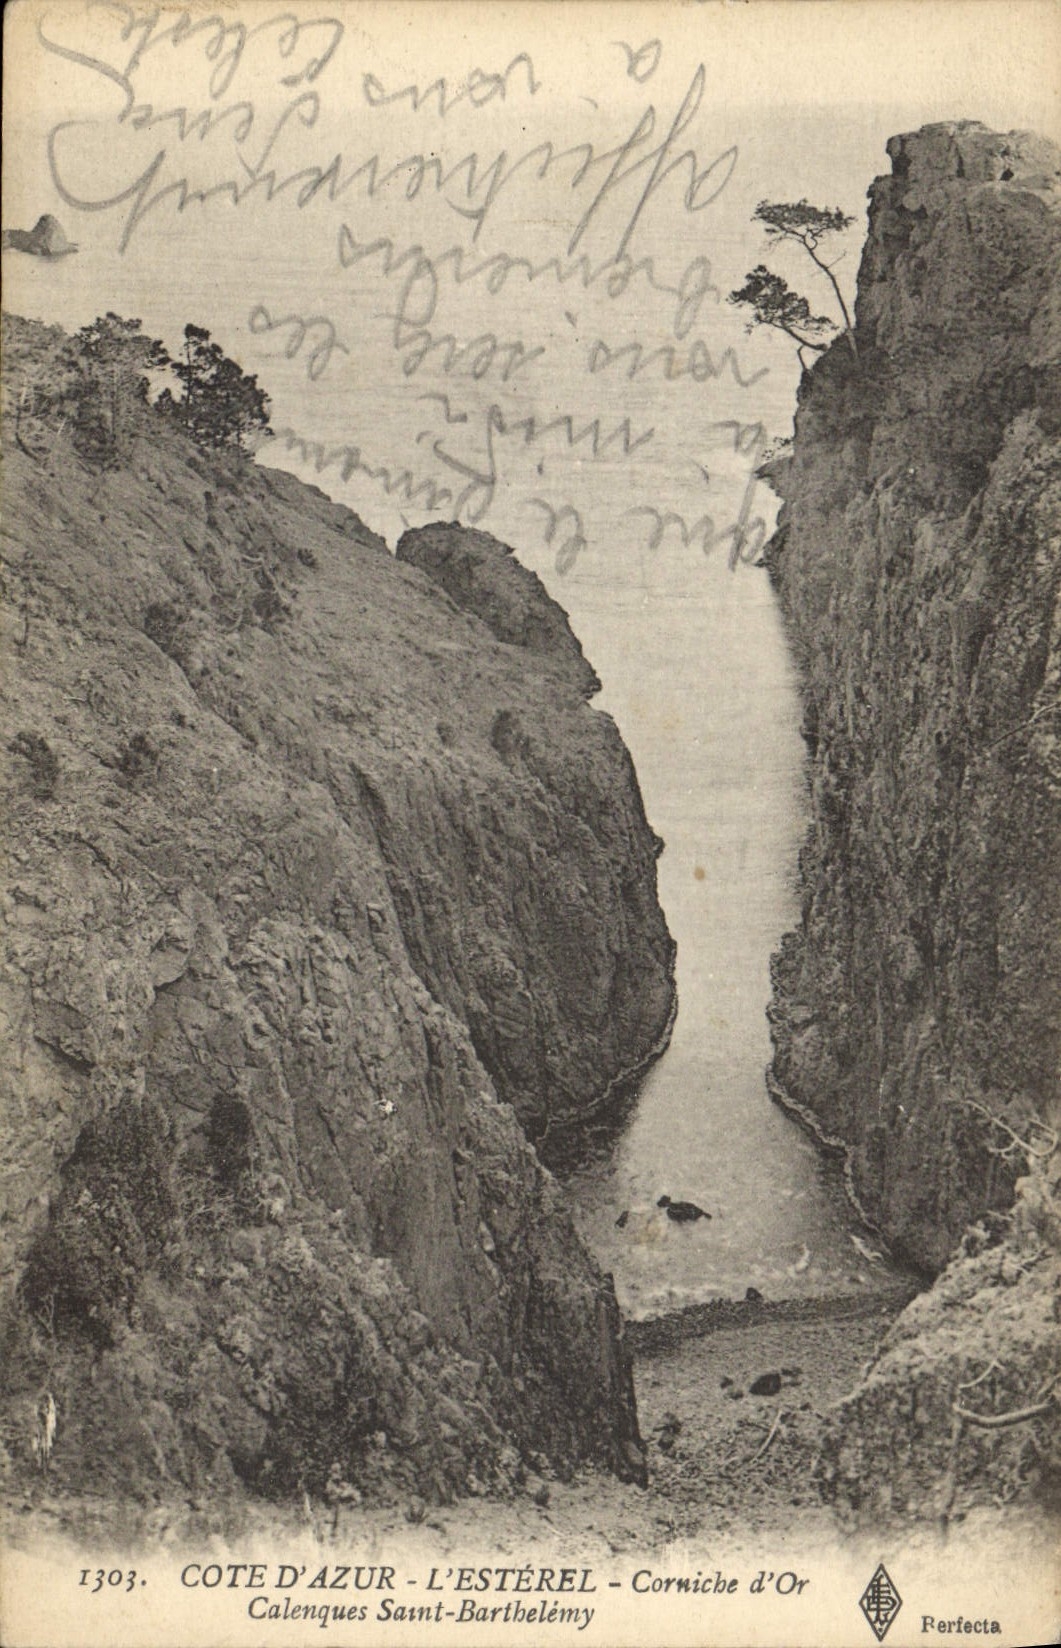 que le
à midi
vous serez les
bienvenus
affectueusement
à vous
Céleste
1303. COTE D'AZUR - L'ESTÉREL - Corniche d'Or
Calenques Saint-Barthelémy
Perfecta